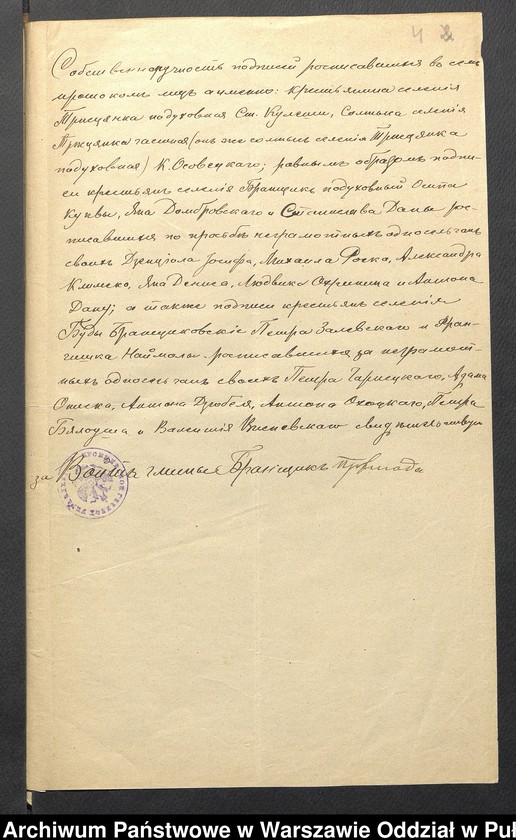 4 2
Собственноручность подписей росписавшихся во семъ
протоколѣ лицъ а именно: крестьянина селенія
Тржцянка подуховная Ст. Кулеши, Солтыса селенія
Тржцянка часкная (онъ же солтысъ селенія Тржцянка
подуховная) К. Осовецкаго; равнымъ образомъ подпи-
си крестьянъ селенія Бранщикъ подуховный Осипа
Куквы, Яна Домбровскаго и Станислава Даны рос-
писавшихся по просьбѣ неграмотныхъ односельчанъ
своихъ Дзенціола Іосифа, Михаила Роска, Александра
Климеко, Яна Дениса, Людвика Охремина и Антона
Дану; а также подписи крестьянъ селенія
Буды Бранщиковскіе Петра Залевскаго и Фран-
цишка Наймолы росписавшихся за неграмот-
ныхъ односельчанъ своихъ Петра Гарисцкаго, Адама
Описка, Антона Дзюбеля, Антона Охоцкаго, Петра
Бялоуша и Валентія Висневскаго
за Войтъ гмины Бранщикъ
Archiwum Państwowe w Warszawie Oddział w Puł